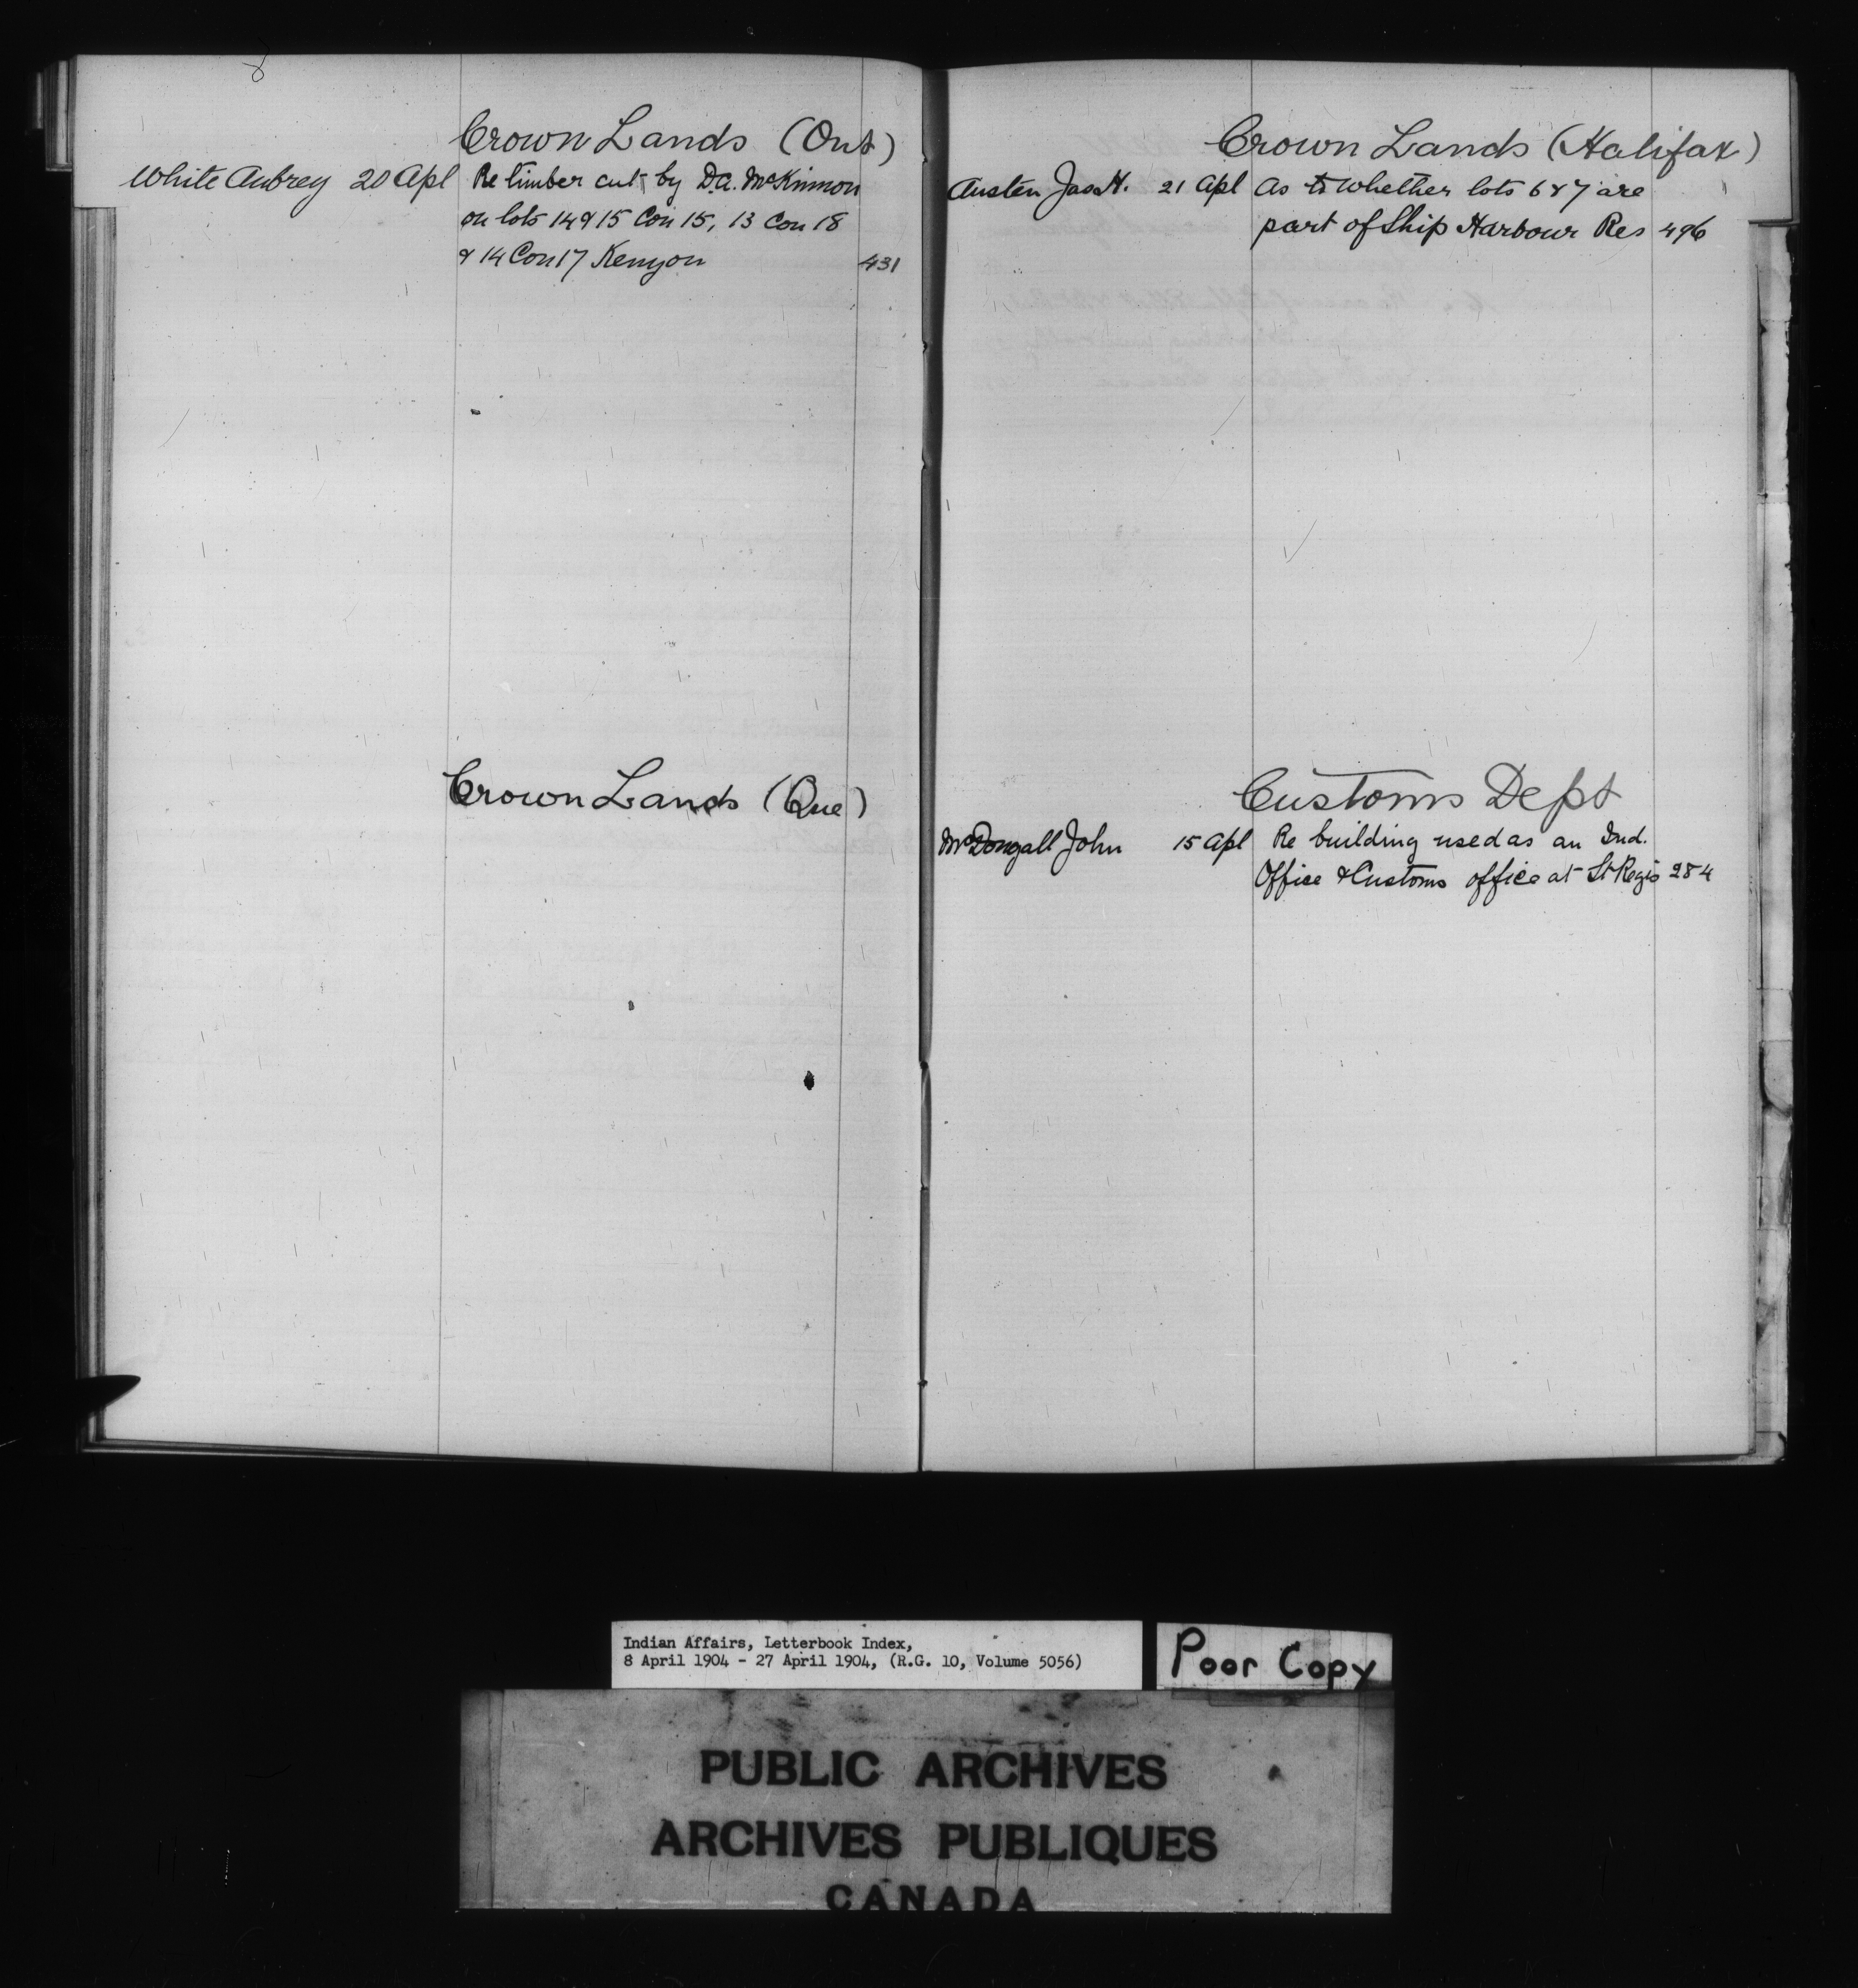 8
Crown Lands (Ont)
White Aubrey 20 Apl Re timber cut by D.A. McKinnon
on lots 14 & 15 Con 15, 13 Con 18
& 14 Con 17 Kenyon 431
Crown Lands (Que)
Crown Lands (Halifax)
Austen Jas H. 21 Apl As to whether lots 6 & 7 are
part of Ship Harbour Res 496
Customs Dept
McDougall John 15 Apl Re building used as an Ind.
Office & Customs office at St Regis 284
Indian Affairs, Letterbook Index,
8 April 1904 - 27 April 1904, (R.G. 10, Volume 5056)
Poor Copy
PUBLIC ARCHIVES
ARCHIVES PUBLIQUES
CANADA